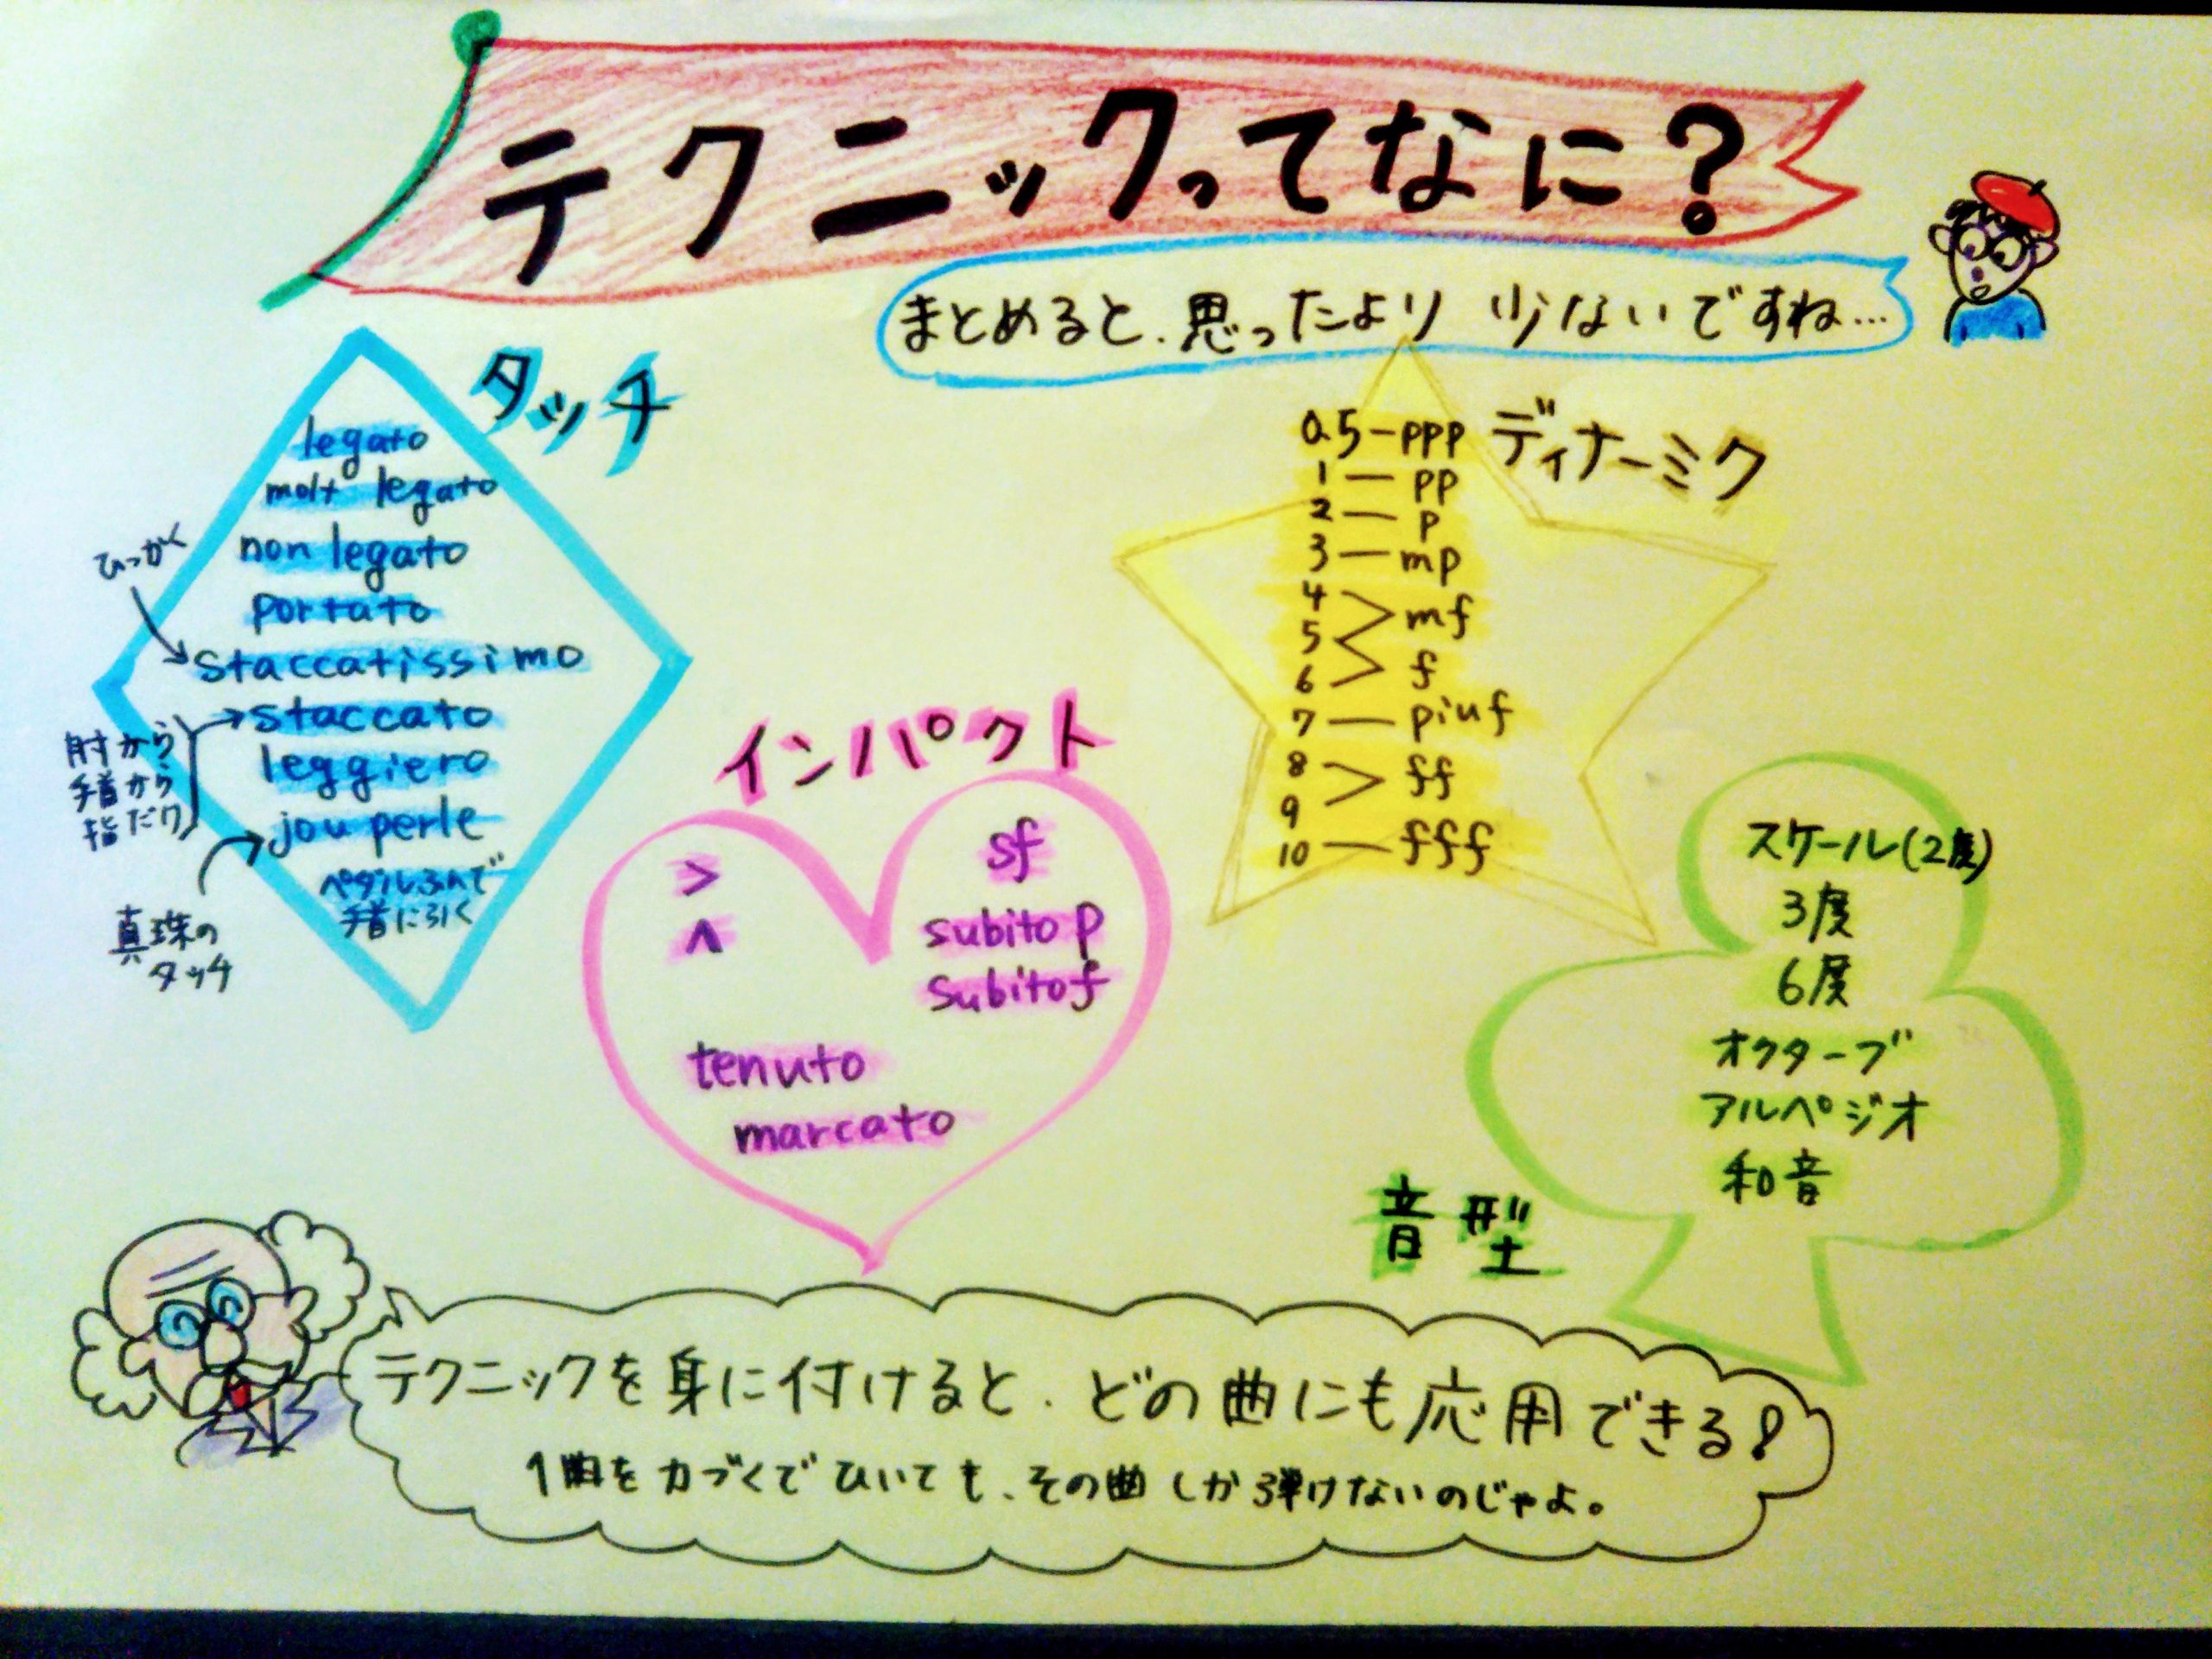 テクニックってなに?
まとめると、思ったより 少ないですね…
タッチ
legato
molt legato
non legato
portato
staccatissimo
staccato
leggiero
jou perle
ペダルふんで
手首に引く
ひっかく
肘から
手首から
指だけ
真珠の
タッチ
インパクト
>
∧
sf
subito p
subito f
tenuto
marcato
ディナーミク
0.5－ppp
1 － pp
2 － p
3 － mp
4
5
mf
6
f
7 － piu f
8
9
ff
10 － fff
スケール(2度)
3度
6度
オクターブ
アルペジオ
和音
音型
テクニックを身に付けると、どの曲にも応用できる!
1曲を力づくでひいても、その曲しか弾けないのじゃよ。